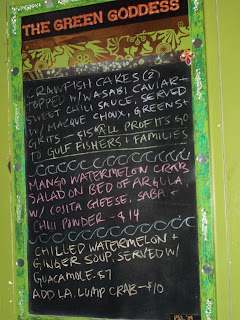 THE GREEN GODDESS
CRAWFISH CAKES (2)
TOPPED W/WASABI CAVIAR-
SWEET CHILI SAUCE, SERVED
W/ MACQUE CHOUX, GREENS+
GRITS - ALL PROFITS GO
TO GULF FISHERS + FAMILIES
MANGO WATERMELON CRAB
SALAD ON BED OF ARGULA
W/ COJITA CHEESE, SABA +
CHILI POWDER - $14
CHILLED WATERMELON +
GINGER SOUP, SERVED W/
GUACAMOLE - $7
ADD LA. LUMP CRAB - $10